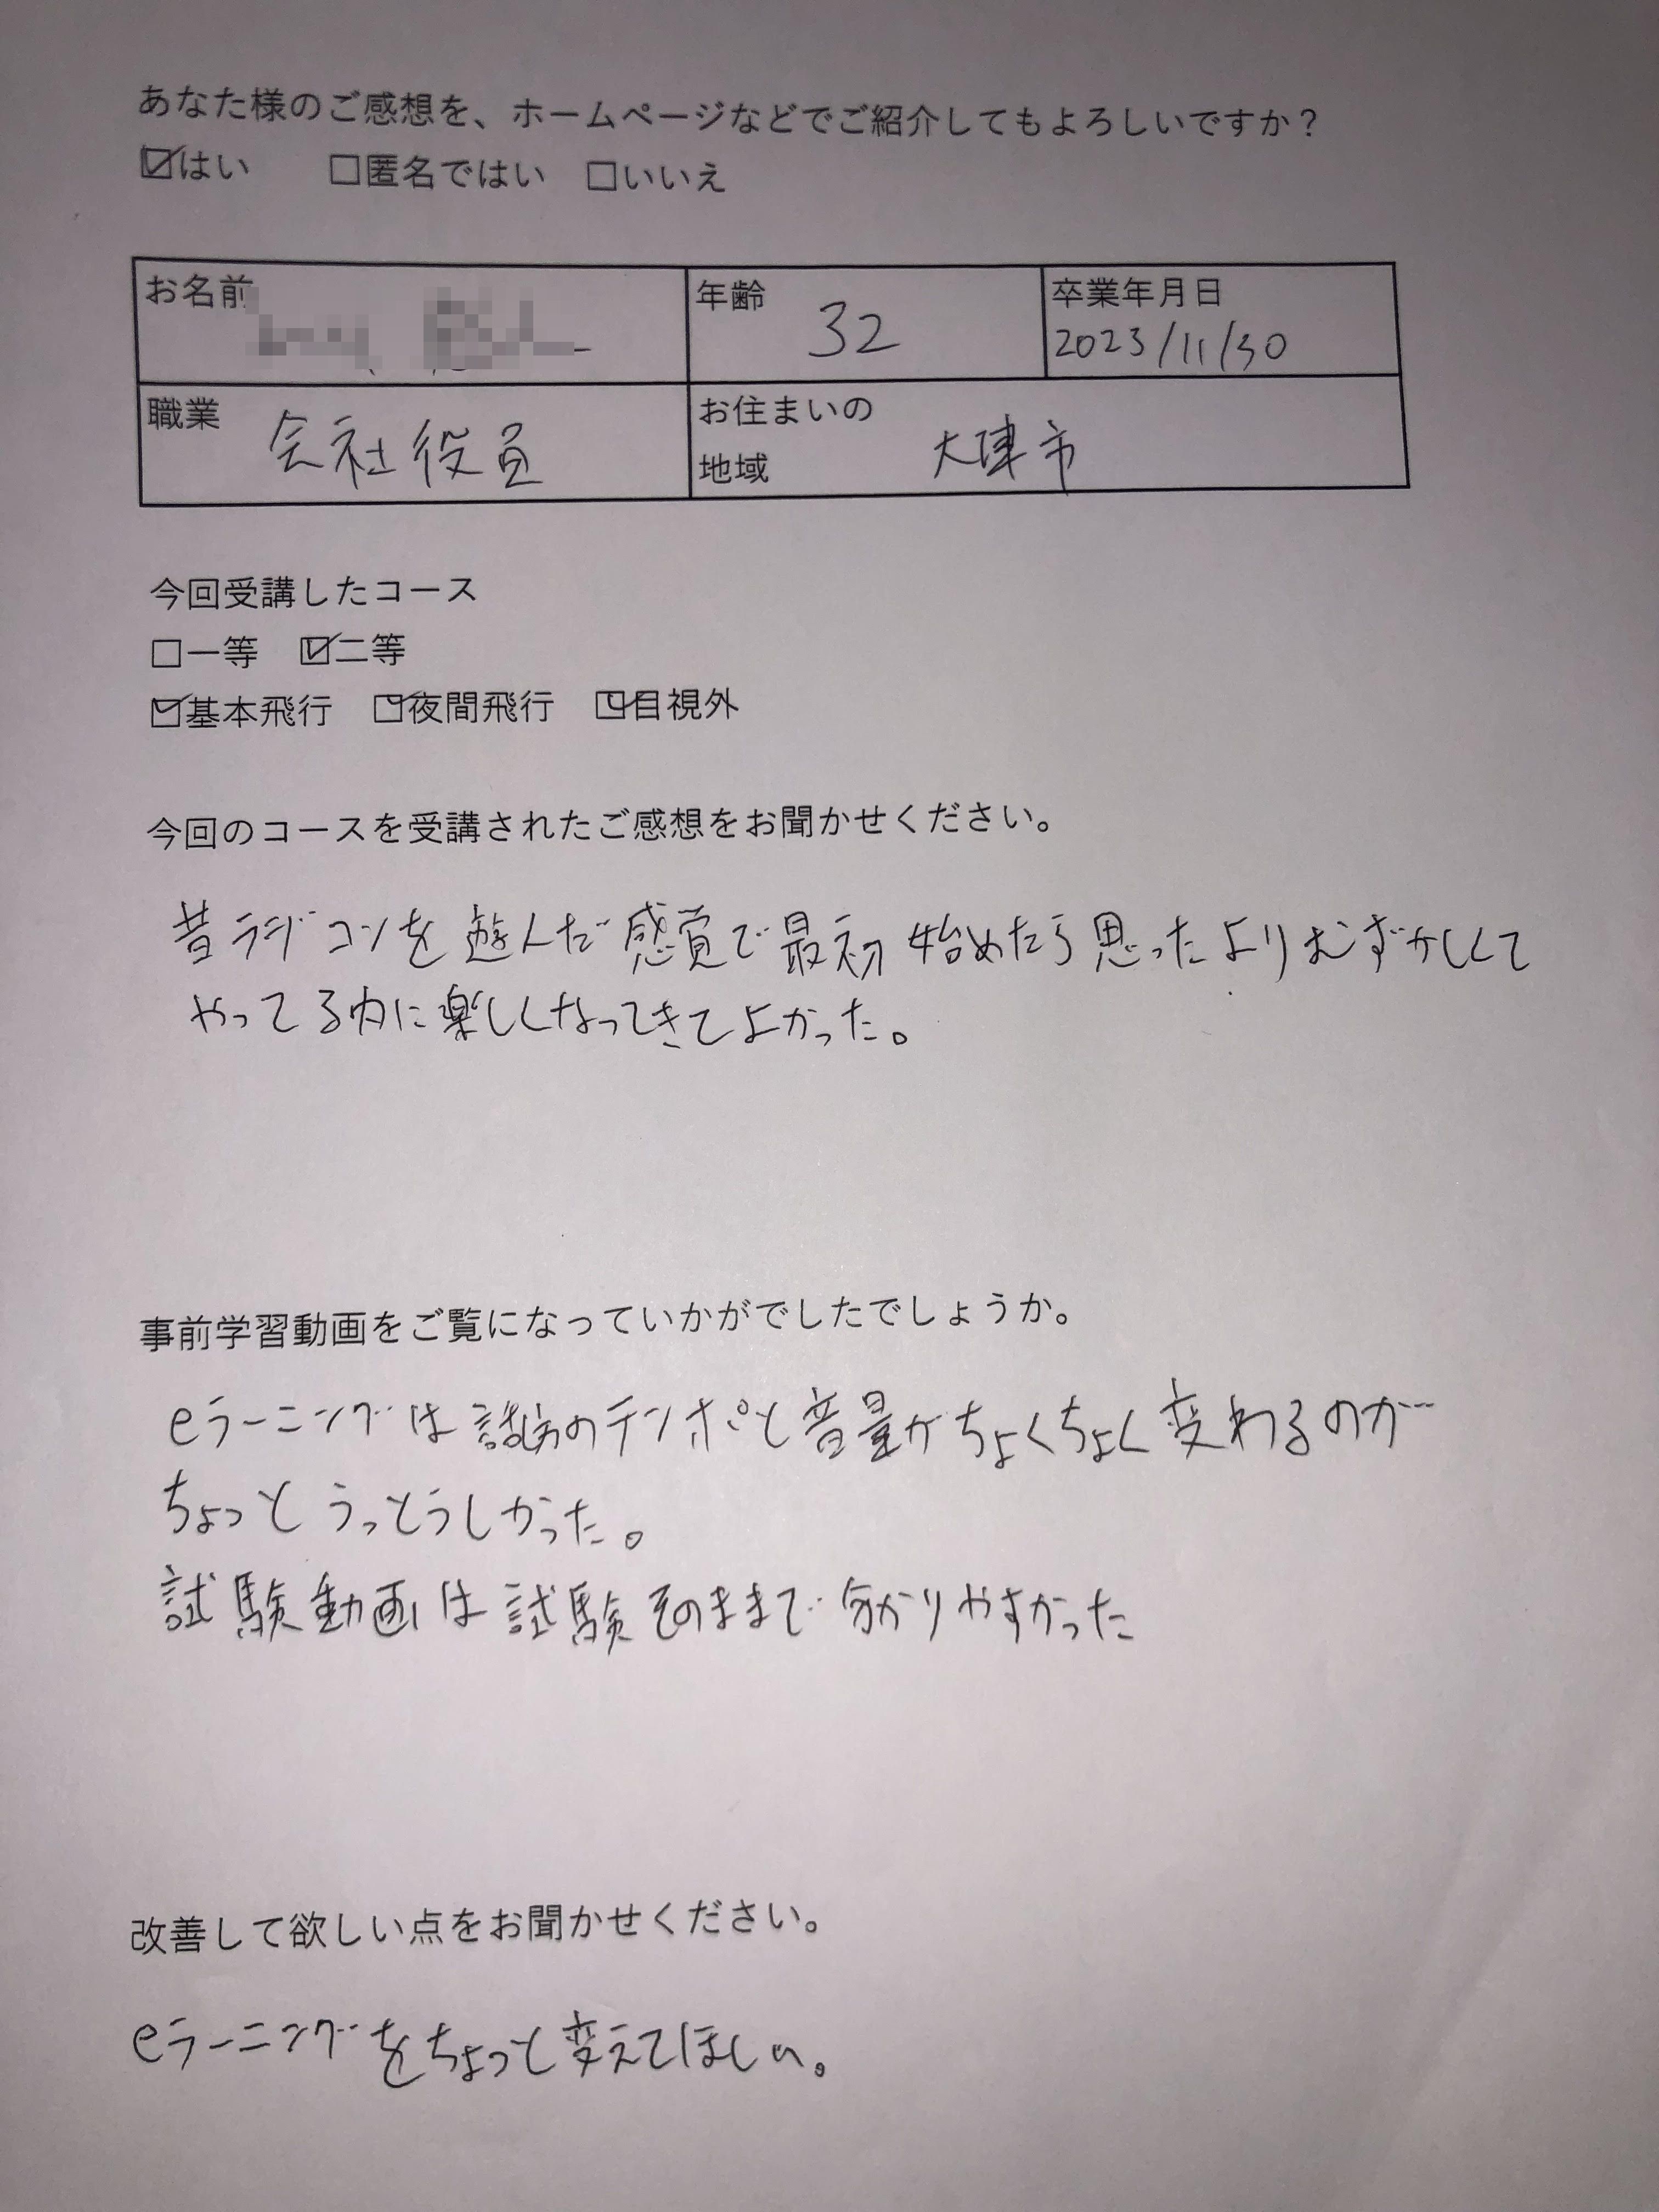 あなた様のご感想を、ホームページなどでご紹介してもよろしいですか?
☑はい □匿名ではい □いいえ
お名前 年齢 32 卒業年月日 2023/11/30
職業 会社役員 お住まいの地域 大津市
今回受講したコース
□一等 ☑二等
☑基本飛行 ☑夜間飛行 ☑目視外
今回のコースを受講されたご感想をお聞かせください。
昔ラジコンを遊んだ感覚で最初始めたら思ったよりむずかしくて
やってる内に楽しくなってきてよかった。
事前学習動画をご覧になっていかがでしたでしょうか。
eラーニングは のテンポと音量がちょくちょく変わるのが
ちょっとうっとうしかった。
試験動画は試験そのままで分かりやすかった
改善して欲しい点をお聞かせください。
eラーニングをちょっと変えてほしい。